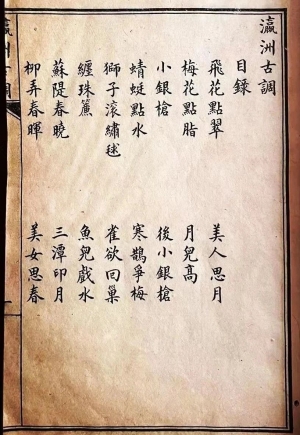 瀛洲古調
目錄
飛花點翠
美人思月
梅花點脂
月兒高
小銀槍
後小銀槍
蜻蜓點水
寒鵲爭梅
獅子滾繡毬
雀欲回巢
纏珠簾
魚兒戲水
蘇隄春曉
三潭印月
柳弄春暉
美女思春
瀛洲古調